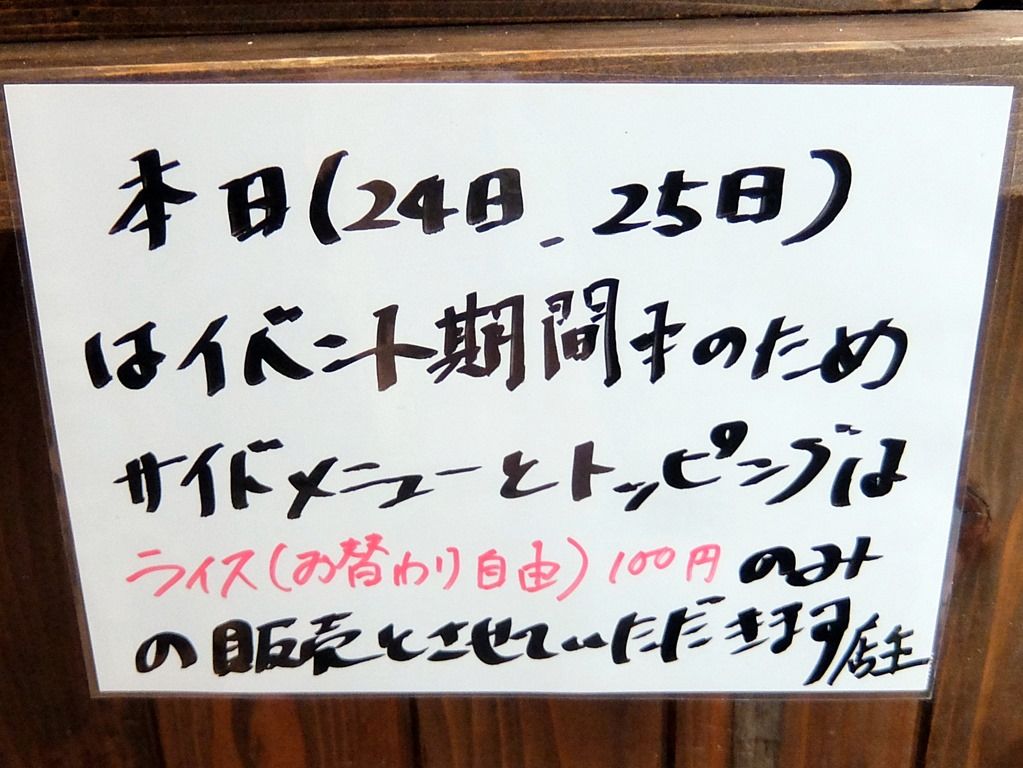 本日(24日、25日)
はイベント期間中のため
サイドメニューとトッピングは
ライス(お替わり自由)100円のみ
の販売とさせていただきます 店主